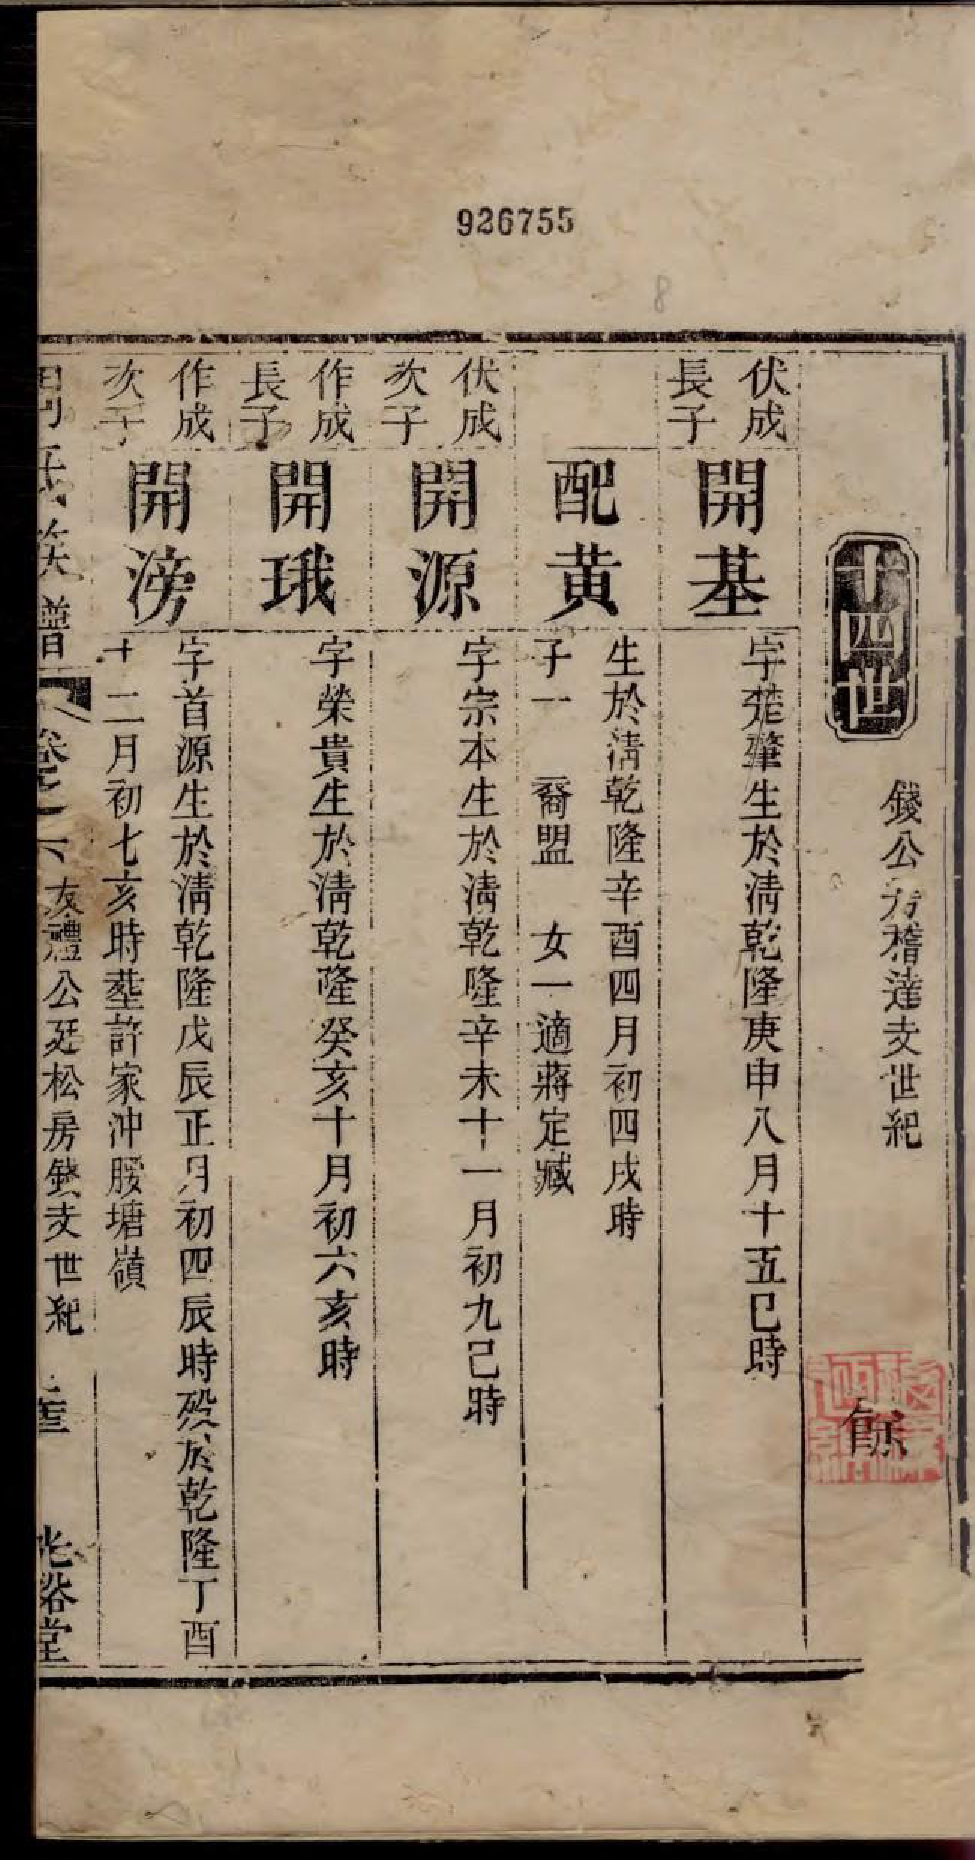 926755
8
錢公房稽達支世紀
十四世
伏成
長子
開基
字楚肇生於清乾隆庚申八月十五巳時
配黄
生於清乾隆辛酉四月初四戌時
子一 裔盟 女一適蔣定臧
伏成
次子
開源
字宗本生於清乾隆辛未十一月初九巳時
作成
長子
開珴
字榮貴生於清乾隆癸亥十月初六亥時
作成
次子
開滂
字首源生於清乾隆戊辰正月初四辰時殁於乾隆丁酉
十二月初七亥時塟許家沖塍塘嶺
氏族譜 卷之六 友禮公廷松房錢支世紀 光裕堂